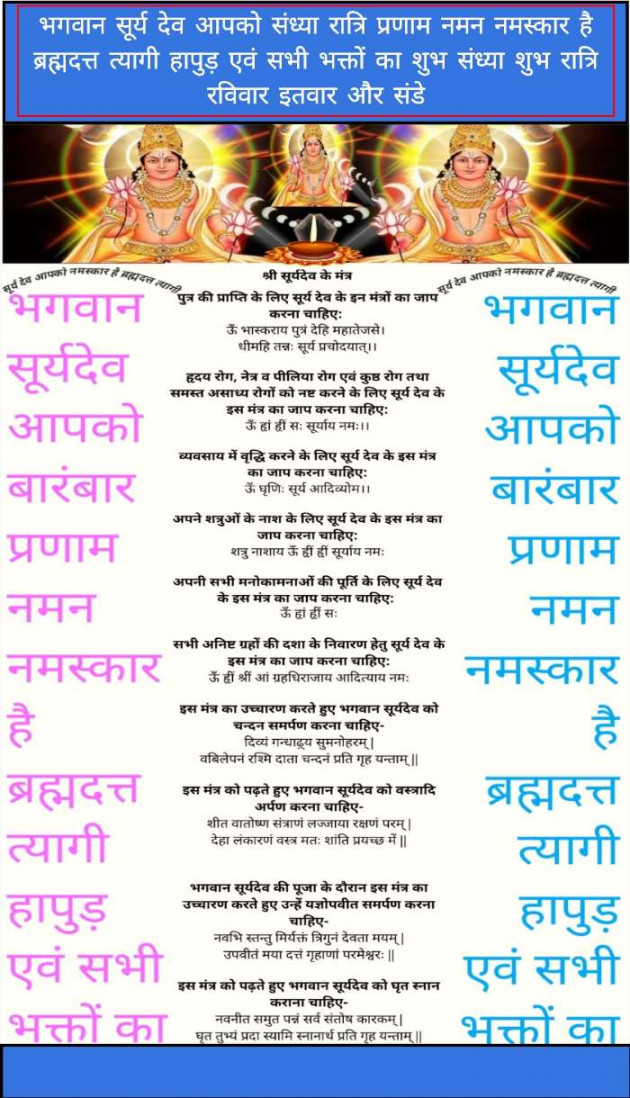 भगवान सूर्य देव आपको संध्या रात्रि प्रणाम नमन नमस्कार है
ब्रह्मदत्त त्यागी हापुड़ एवं सभी भक्तों का शुभ संध्या शुभ रात्रि
रविवार इतवार और संडे
सूर्य देव आपको नमस्कार है ब्रह्मदत्त त्यागी
भगवान
सूर्यदेव
आपको
बारंबार
प्रणाम
नमन
नमस्कार
है
ब्रह्मदत्त
त्यागी
हापुड़
एवं सभी
भक्तों का
श्री सूर्यदेव के मंत्र
पुत्र की प्राप्ति के लिए सूर्य देव के इन मंत्रों का जाप
करना चाहिए:
ऊँ भास्कराय पुत्रं देहि महातेजसे।
धीमहि तन्नः सूर्य प्रचोदयात्।।
हृदय रोग, नेत्र व पीलिया रोग एवं कुष्ठ रोग तथा
समस्त असाध्य रोगों को नष्ट करने के लिए सूर्य देव के
इस मंत्र का जाप करना चाहिए:
ऊँ ह्रां ह्रीं सः सूर्याय नमः।।
व्यवसाय में वृद्धि करने के लिए सूर्य देव के इस मंत्र
का जाप करना चाहिए:
ऊँ घृणिः सूर्य आदिव्योम।।
अपने शत्रुओं के नाश के लिए सूर्य देव के इस मंत्र का
जाप करना चाहिए:
शत्रु नाशाय ऊँ ह्रीं ह्रीं सूर्याय नमः
अपनी सभी मनोकामनाओं की पूर्ति के लिए सूर्य देव
के इस मंत्र का जाप करना चाहिए:
ऊँ ह्रां ह्रीं सः
सभी अनिष्ट ग्रहों की दशा के निवारण हेतु सूर्य देव के
इस मंत्र का जाप करना चाहिए:
ऊँ ह्रीं श्रीं आं ग्रहधिराजाय आदित्याय नमः
इस मंत्र का उच्चारण करते हुए भगवान सूर्यदेव को
चन्दन समर्पण करना चाहिए-
दिव्यं गन्धाढ़्य सुमनोहरम् |
वबिलेपनं रश्मि दाता चन्दनं प्रति गृह यन्ताम् ||
इस मंत्र को पढ़ते हुए भगवान सूर्यदेव को वस्त्रादि
अर्पण करना चाहिए-
शीत वातोष्ण संत्राणं लज्जाया रक्षणं परम् |
देहा लंकारणं वस्त्र मतः शांति प्रयच्छ में ||
भगवान सूर्यदेव की पूजा के दौरान इस मंत्र का
उच्चारण करते हुए उन्हें यज्ञोपवीत समर्पण करना
चाहिए-
नवभि स्तन्तु मिर्यक्तं त्रिगुनं देवता मयम् |
उपवीतं मया दत्तं गृहाणां परमेश्वरः ||
इस मंत्र को पढ़ते हुए भगवान सूर्यदेव को घृत स्नान
कराना चाहिए-
नवनीत समुत पन्नं सर्व संतोष कारकम् |
घृत तुभ्यं प्रदा स्यामि स्नानार्थ प्रति गृह यन्ताम् ||
सूर्य देव आपको नमस्कार है ब्रह्मदत्त त्यागी
भगवान
सूर्यदेव
आपको
बारंबार
प्रणाम
नमन
नमस्कार
है
ब्रह्मदत्त
त्यागी
हापुड़
एवं सभी
भक्तों का